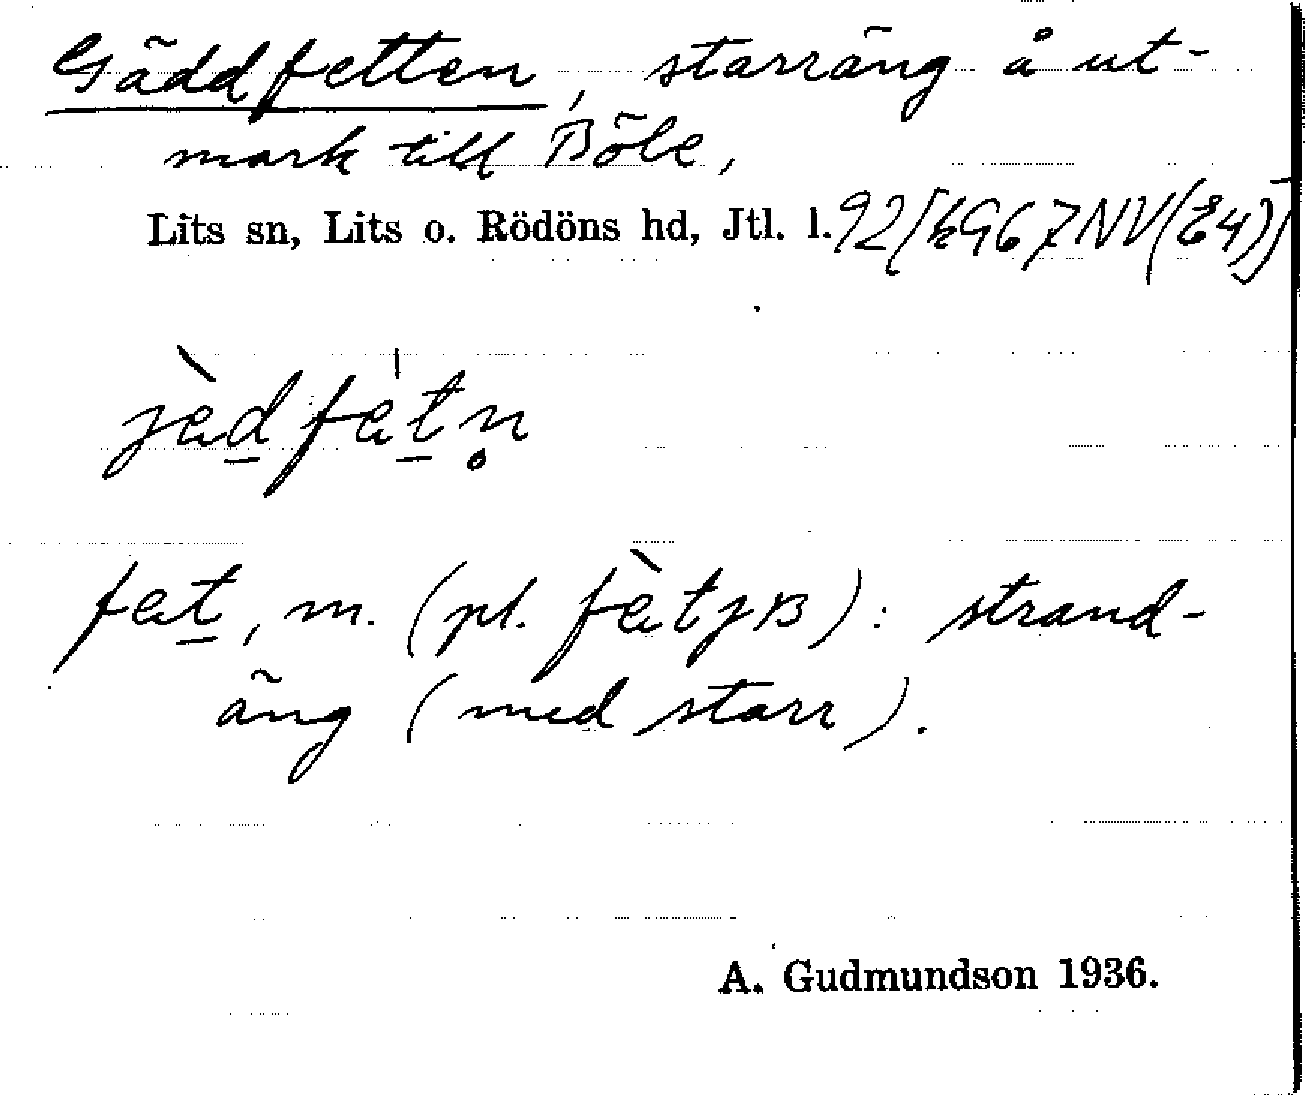 Gäddfetten, starräng å ut-
mark till Böle,
Lits sn, Lits o. Rödöns hd, Jtl. l. 92[kG67NV(E4)]
jèd̲fet̲n̥
fet̲, m. (pl. fètjʙ): strand-
äng (med starr).
A. Gudmundson 1936.